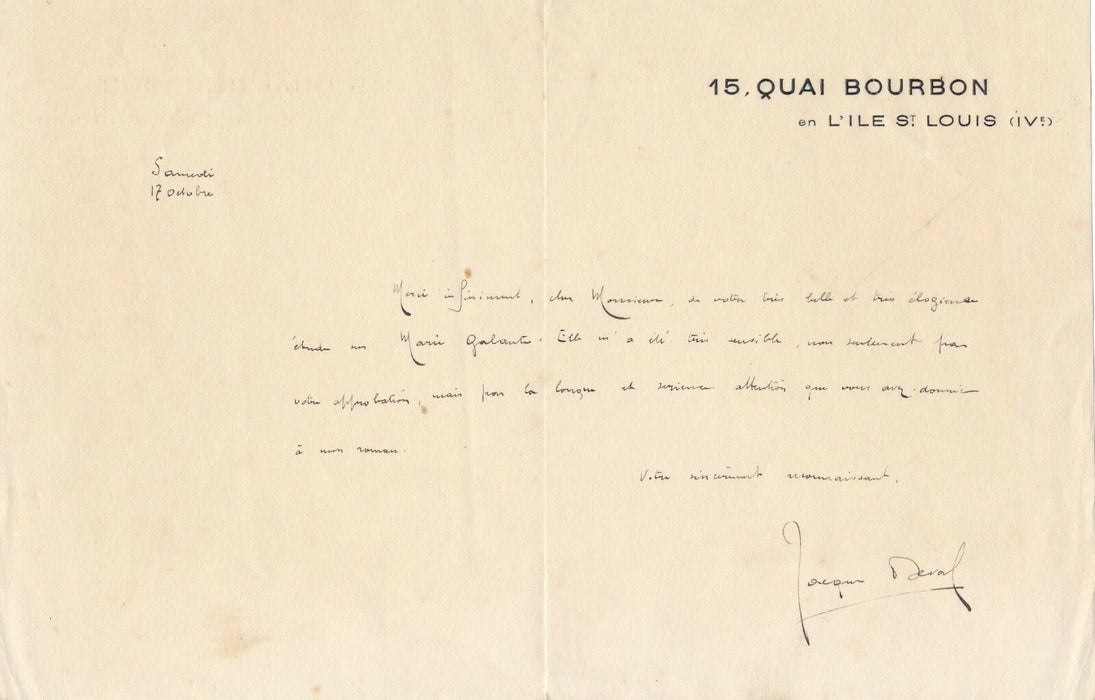 15, QUAI BOURBON
en L'ILE ST LOUIS (IVE)
Samedi
17 octobre
Merci infiniment, cher Monsieur, de votre très belle et très élogieuse
étude sur Marie Galante. Elle m'a été très sensible, non seulement par
votre approbation, mais par la longue et sérieuse attention que vous avez donnée
à mon roman.
Votre sincèrement reconnaissant,
Jacques Deval